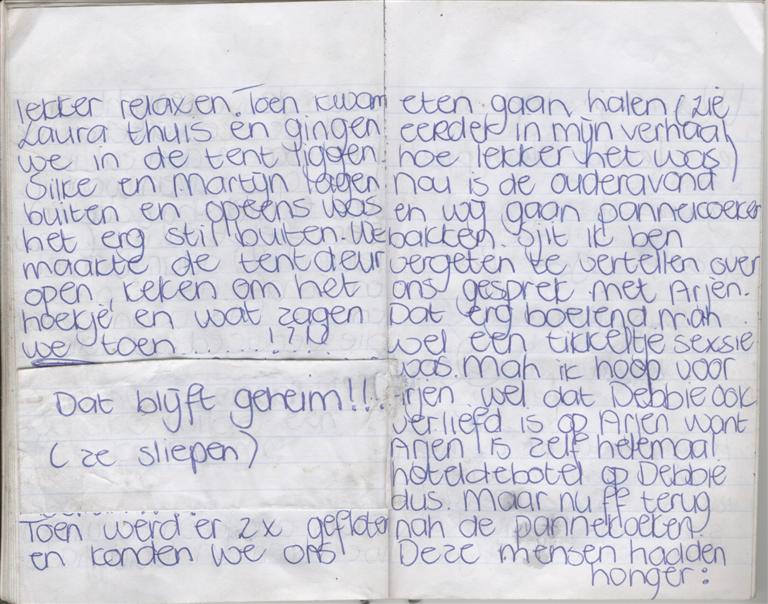 lekker relaxen. Toen kwam
Laura thuis en gingen
we in de tent liggen.
Silke en Martijn lagen
buiten en opeens was
het erg stil buiten. We
maakte de tentdeur
open, keken om het
hoekje en wat zagen
we toen ........!?!?
Dat blijft geheim!!!
(ze sliepen)
Toen werd er 2x gefloten
en konden we ons
eten gaan halen (zie
eerder in mijn verhaal
hoe lekker het was)
nou is de ouderavond
en wij gaan pannekoeken
bakken. Sjit ik ben
vergeten te vertellen over
ons gesprek met Arjen.
Dat erg boeiend mah
wel een tikkeltje sexsie
was. Mah ik hoop voor
Arjen wel dat Debbie ook
verliefd is op Arjen want
Arjen is zelf helemaal
hoteldebotel op Debbie
dus. Maar nu ff terug
nah de pannekoeken.
Deze mensen hadden
honger: